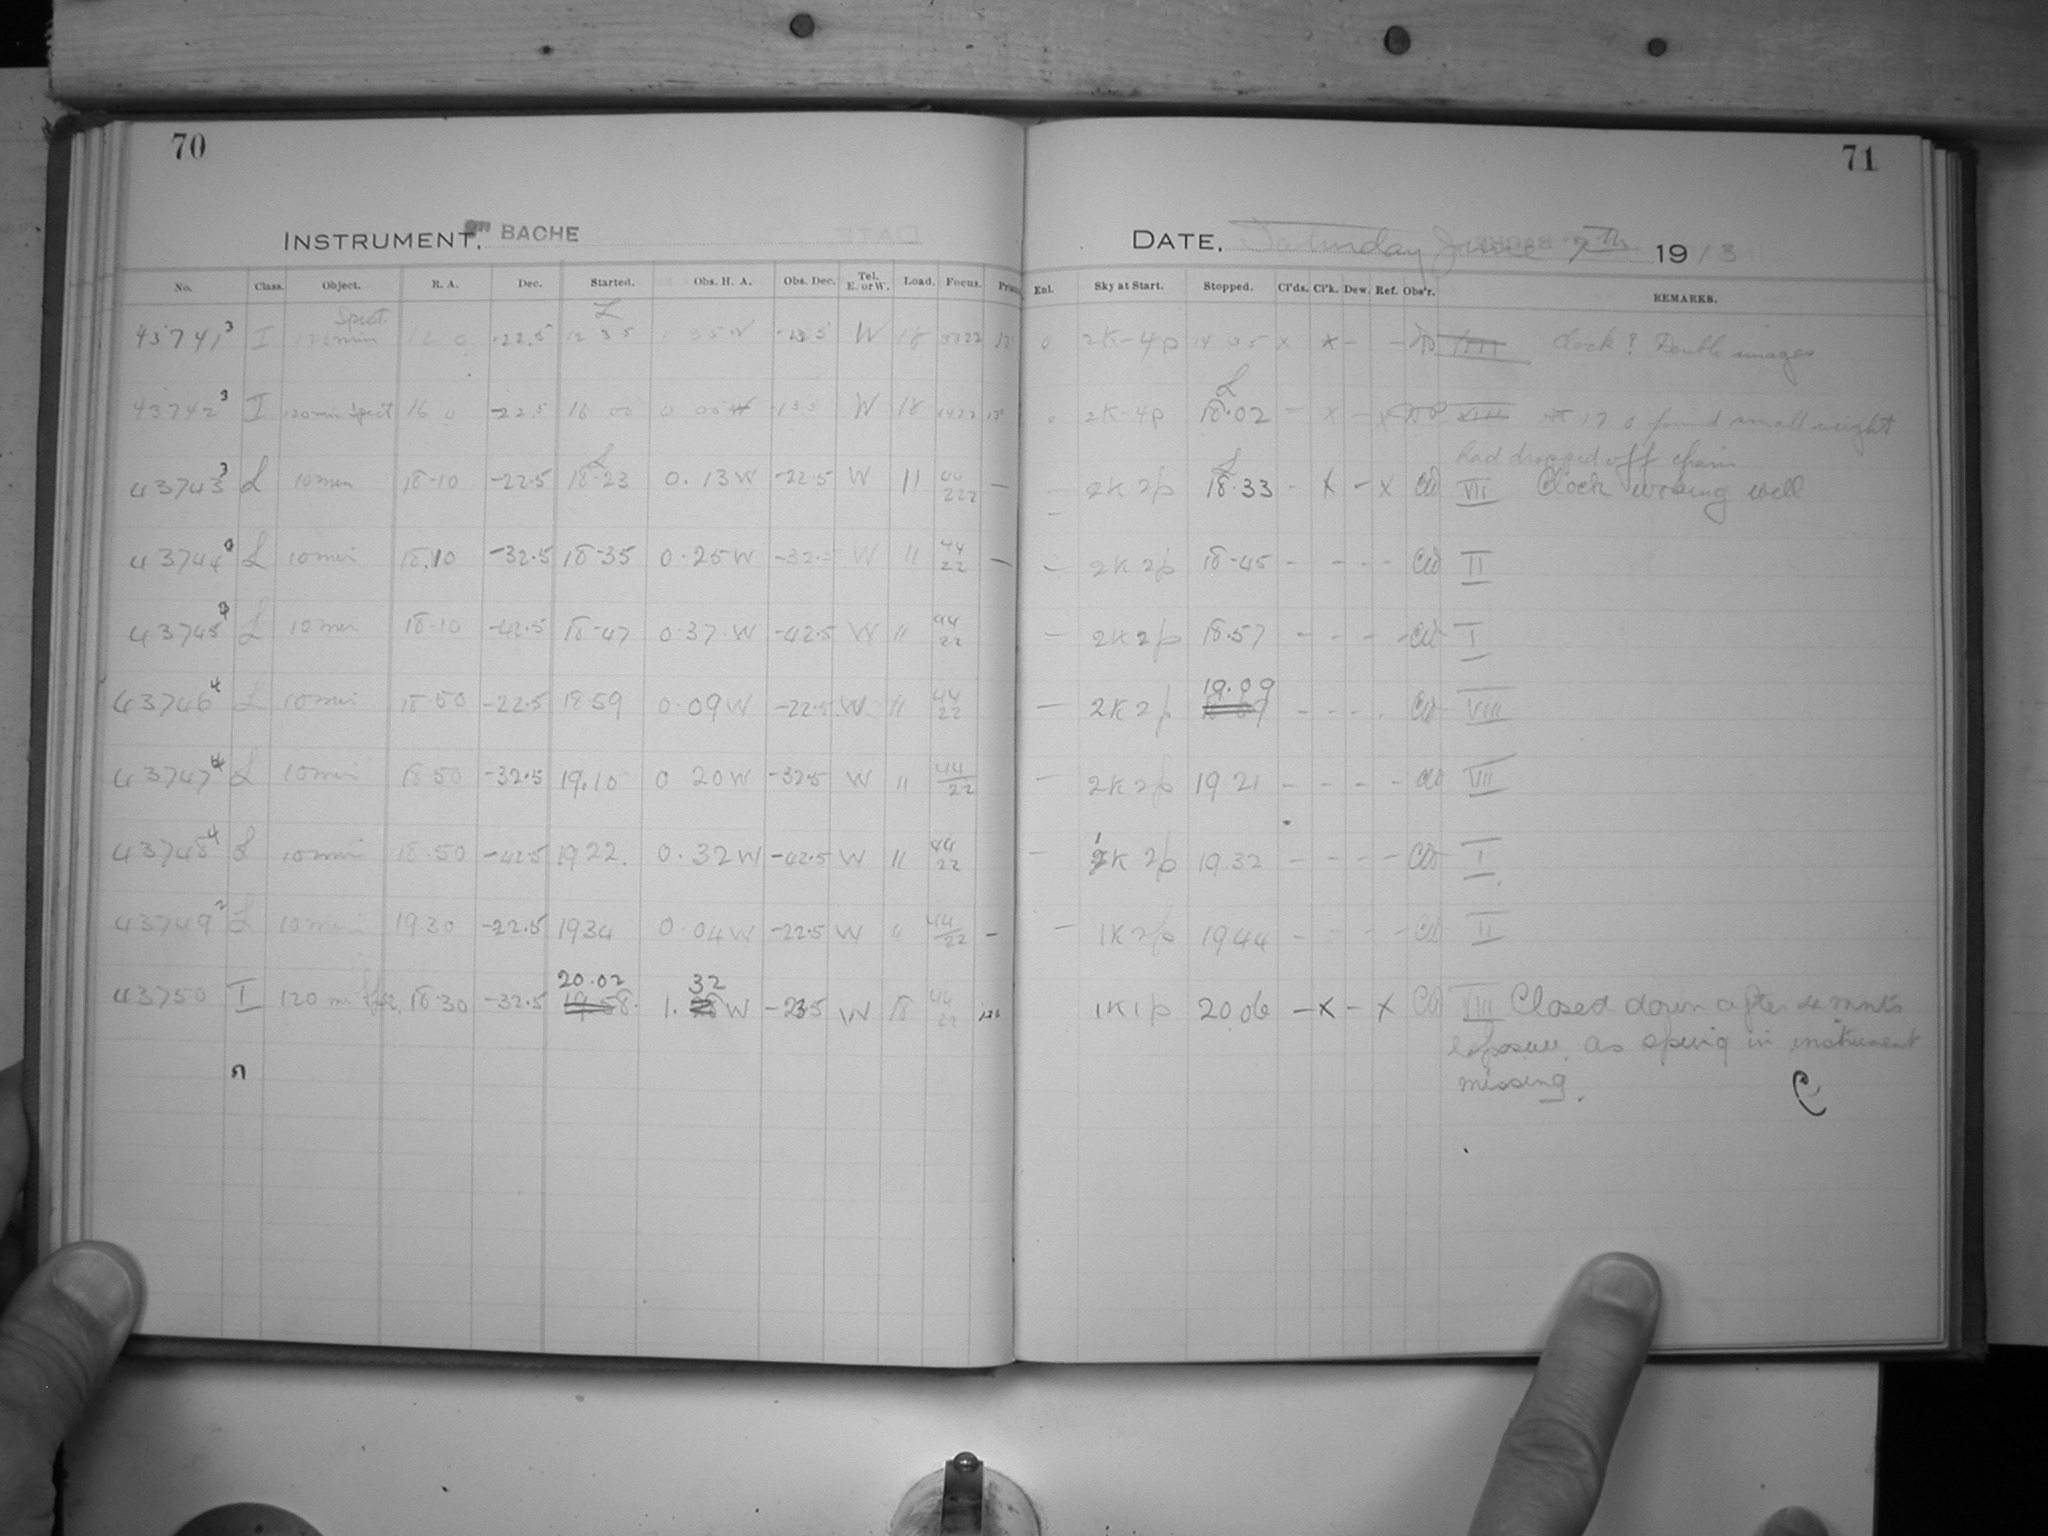 70
INSTRUMENT, BACHE
No. Class. Object. R. A. Dec. Started. Obs. H. A. Obs. Dec. Tel. E. or W. Load. Focus. Prism
43741 3 I 120 min Spect 12 0 -22.5 12 35 W 18
43742 3 I 120 min Spect 16 0 -22.5 16 00 0 00 W 18
43743 3 L 10 min 18-10 -22.5 18-23 0.13 W -22.5 W 11 44 222 —
43744 L 10 min 18.10 -32.5 18-35 0.25 W -32.5 W 11 44 22 —
43745 L 10 min 18.10 -42.5 18-47 0.37.W -42.5 W 11 44 22
43746 4 L 10 min 18.50 -22.5 18 59 0.09 W -22.5 W 11 44 22
43747 4 L 10 min 18 50 -32.5 19.10 0 20 W -32.5 W 11 44 22
43748 4 L 10 min 18.50 -42.5 19 22. 0.32 W -42.5 W 11 44 22
43749 2 L 10 min 19.30 -22.5 19 34 0.04 W -22.5 W 11 44 22 —
43750 I 120 min 18.30 -32.5 20.02 1. 32 W W 18 44 22
71
DATE, Saturday June 7th 1913
Enl. Sky at Start. Stopped. Cl'ds. Cl'k. Dew. Ref. Obs'r. REMARKS.
0 2K-4p 14 35 x x - - Clock? Double images
0 2K-4p 18.02 - x - x At 17 0 found small weight
had dropped off chain
— 2K 2p 18.33 - x - x CW VII Clock working well
— 2K 2p 18-45 - - - - CW II
— 2K 2p 18.57 - - - - CW I
— 2K 2p 19.09 - - - . CW VIII
— 2K 2p 19.21 - - - - CW VII
— 1K 2p 19.32 - - - - CW I
— 1K 2p 19 44 - - - - CW II
1K 1p 20.06 - x - x CW VIII Closed down after 4 mnts
exposure, as spring in instrument
missing.
C